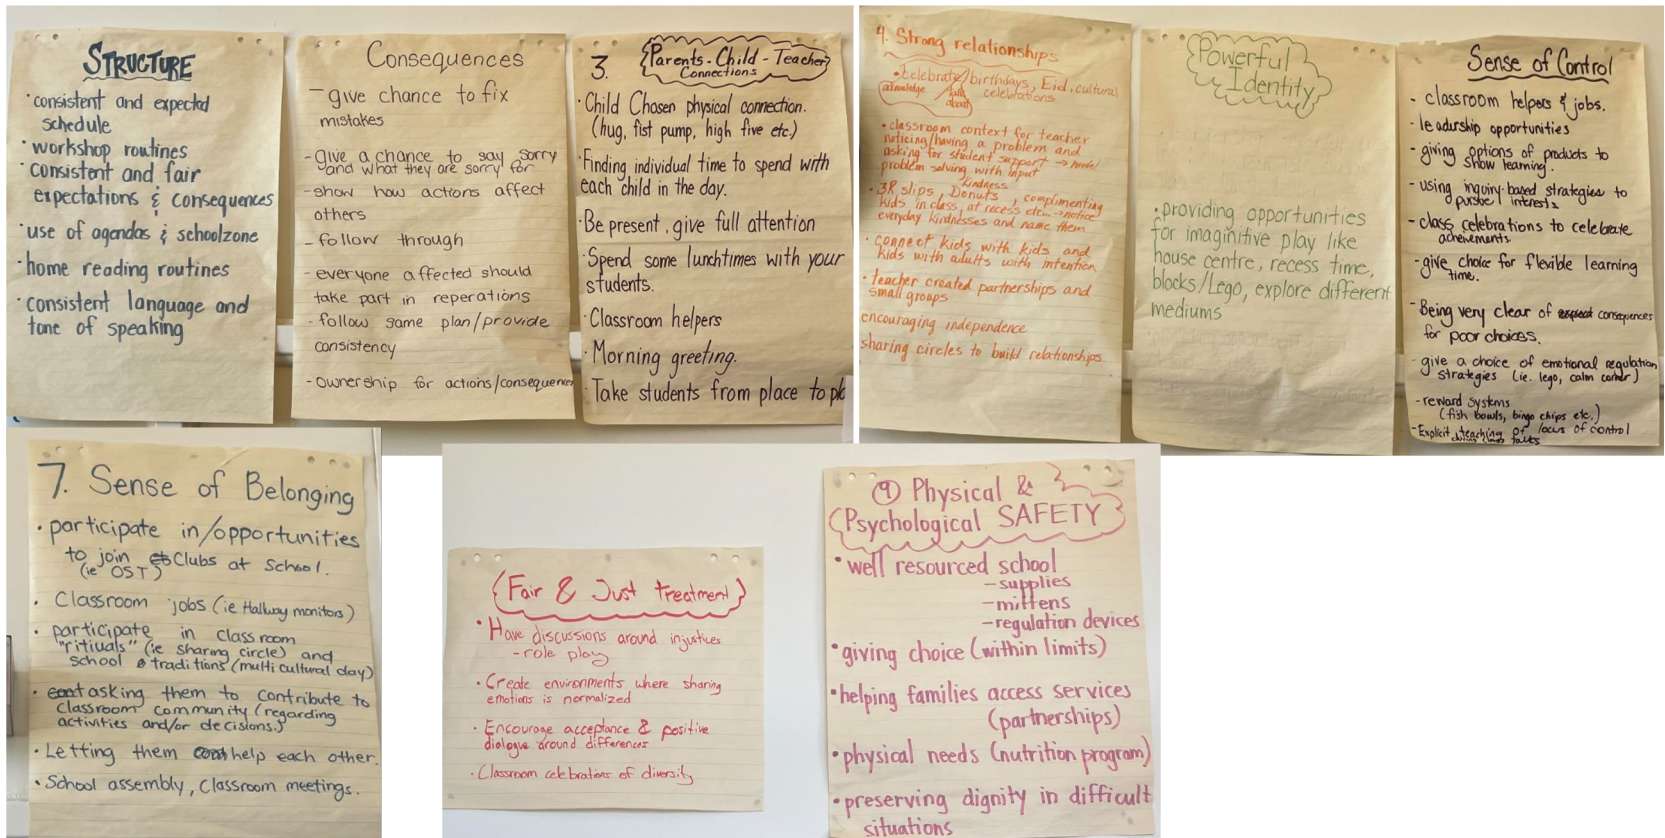 STRUCTURE
• consistent and expected
schedule
• workshop routines
• consistent and fair
expectations & consequences
• use of agendas & schoolzone
• home reading routines
• consistent language and
tone of speaking
Consequences
- give chance to fix
mistakes
- give a chance to say sorry
and what they are sorry for
- show how actions affect
others
- follow through
- everyone affected should
take part in reperations
- follow same plan/provide
consistency
- ownership for actions/consequences
3. Parents - Child - Teacher
Connections
• Child Chosen physical connection.
(hug, fist pump, high five etc.)
• Finding individual time to spend with
each child in the day.
• Be present, give full attention
• Spend some lunchtimes with your
students.
• Classroom helpers
• Morning greeting.
• Take students from place to
4. Strong relationships
• celebrate/birthdays, Eid, cultural
acknowledge / talk about celebrations
• classroom context for teacher
noticing/having a problem and
asking for student support → model
problem solving with input
• 3R slips, Kindness Donuts, complimenting
kids in class, at recess etc... → notice
everyday kindnesses and name them
• connect kids with kids and
kids with adults with intention
• teacher created partnerships and
small groups
encouraging independence
sharing circles to build relationships.
Powerful
Identity
• providing opportunities
for imaginitive play like
house centre, recess time,
blocks/Lego, explore different
mediums
Sense of Control
- classroom helpers & jobs.
- leadership opportunities
- giving options of products to
show learning.
- using inquiry-based strategies to
pursue interests
- class celebrations to celebrate
acheivements.
- give choice for flexible learning
time.
- Being very clear of consequences
for poor choices.
- give a choice of emotional regulation
strategies (ie. lego, calm corner)
- reward systems
(fish bowls, bingo chips etc.)
- Explicit teaching of locus of control
during class talks
7. Sense of Belonging
• participate in/opportunities
to join Clubs at School.
(ie OST)
• Classroom jobs (ie Hallway monitors)
• participate in classroom
"rituals" (ie sharing circle) and
school traditions (multi cultural day)
• asking them to contribute to
classroom community (regarding
activities and/or decisions.)
• Letting them help each other.
• School assembly, Classroom meetings.
Fair & Just treatment
• Have discussions around injustices
- role play
• Create environments where sharing
emotions is normalized
• Encourage acceptance & positive
dialogue around differences
• Classroom celebrations of diversity
9 Physical &
Psychological SAFETY
• well resourced school
- supplies
- mittens
- regulation devices
• giving choice (within limits)
• helping families access services
(partnerships)
• physical needs (nutrition program)
• preserving dignity in difficult
situations